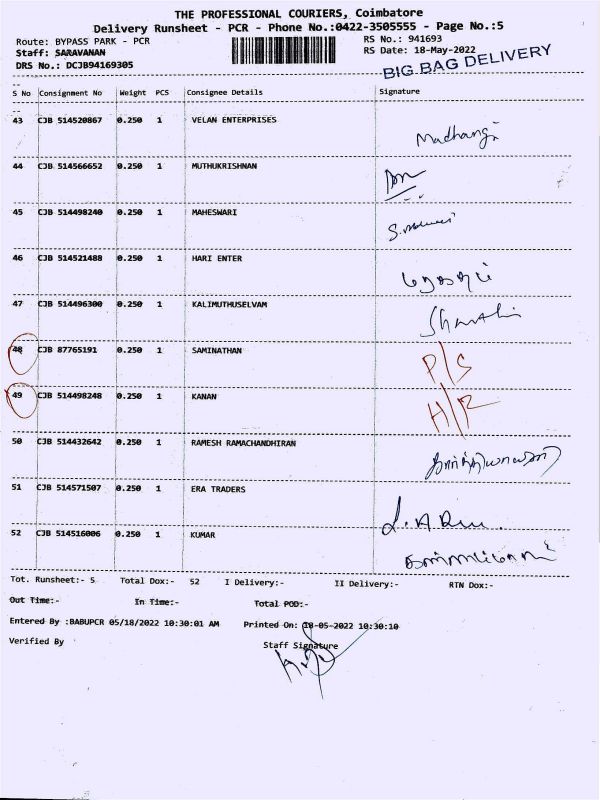 THE PROFESSIONAL COURIERS, Coimbatore
Delivery Runsheet - PCR - Phone No.:0422-3505555 - Page No.:5
Route: BYPASS PARK - PCR RS No.: 941693
Staff: SARAVANAN RS Date: 18-May-2022
DRS No.: DCJB94169305 BIG BAG DELIVERY
S No Consignment No Weight PCS Consignee Details Signature
43 CJB 514520867 0.250 1 VELAN ENTERPRISES
44 CJB 514566652 0.250 1 MUTHUKRISHNAN
45 CJB 514498240 0.250 1 MAHESWARI
46 CJB 514521488 0.250 1 HARI ENTER
47 CJB 514496300 0.250 1 KALIMUTHUSELVAM
48 CJB 87765191 0.250 1 SAMINATHAN P/S
49 CJB 514498248 0.250 1 KANAN H/R
50 CJB 514432642 0.250 1 RAMESH RAMACHANDHIRAN
51 CJB 514571507 0.250 1 ERA TRADERS
52 CJB 514516006 0.250 1 KUMAR
Tot. Runsheet:- 5 Total Dox:- 52 I Delivery:- II Delivery:- RTN Dox:-
Out Time:- In Time:- Total POD:-
Entered By :BABUPCR 05/18/2022 10:30:01 AM Printed On: 18-05-2022 10:30:10
Verified By Staff Signature